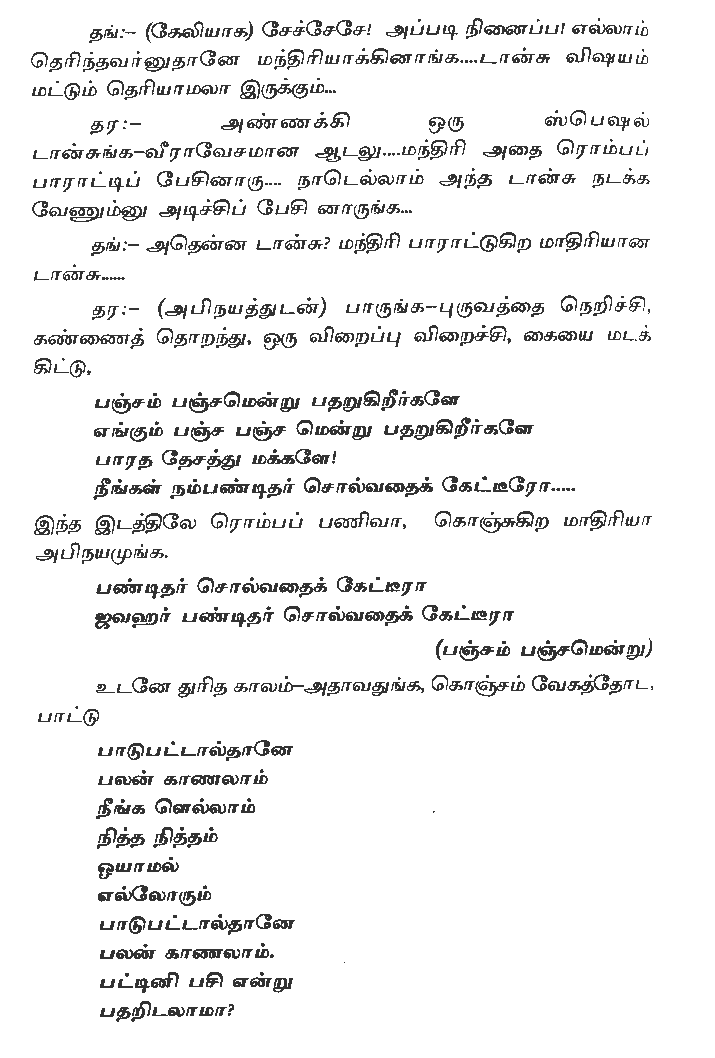 தங்:– (கேலியாக) சேச்சேசே! அப்படி நினைப்ப! எல்லாம்
தெரிந்தவர்னுதானே மந்திரியாக்கினாங்க....டான்சு விஷயம்
மட்டும் தெரியாமலா இருக்கும்...
தர:– அண்ணக்கி ஒரு ஸ்பெஷல்
டான்சுங்க–வீராவேசமான ஆடலு....மந்திரி அதை ரொம்பப்
பாராட்டிப் பேசினாரு.... நாடெல்லாம் அந்த டான்சு நடக்க
வேணும்னு அடிச்சிப் பேசி னாருங்க...
தங்:– அதென்ன டான்சு? மந்திரி பாராட்டுகிற மாதிரியான
டான்சு......
தர:– (அபிநயத்துடன்) பாருங்க–புருவத்தை நெறிச்சி,
கண்ணைத் தொறந்து, ஒரு விறைப்பு விறைச்சி, கையை மடக்
கிட்டு,
பஞ்சம் பஞ்சமென்று பதறுகிறீர்களே
எங்கும் பஞ்ச பஞ்ச மென்று பதறுகிறீர்களே
பாரத தேசத்து மக்களே!
நீங்கள் நம்பண்டிதர் சொல்வதைக் கேட்டீரோ.....
இந்த இடத்திலே ரொம்பப் பணிவா, கொஞ்சுகிற மாதிரியா
அபிநயமுங்க.
பண்டிதர் சொல்வதைக் கேட்டீரா
ஜவஹர் பண்டிதர் சொல்வதைக் கேட்டீரா
(பஞ்சம் பஞ்சமென்று)
உடனே துரித காலம்–அதாவதுங்க, கொஞ்சம் வேகத்தோட,
பாட்டு
பாடுபட்டால்தானே
பலன் காணலாம்
நீங்க ளெல்லாம்
நித்த நித்தம்
ஓயாமல்
எல்லோரும்
பாடுபட்டால்தானே
பலன் காணலாம்.
பட்டினி பசி என்று
பதறிடலாமா?